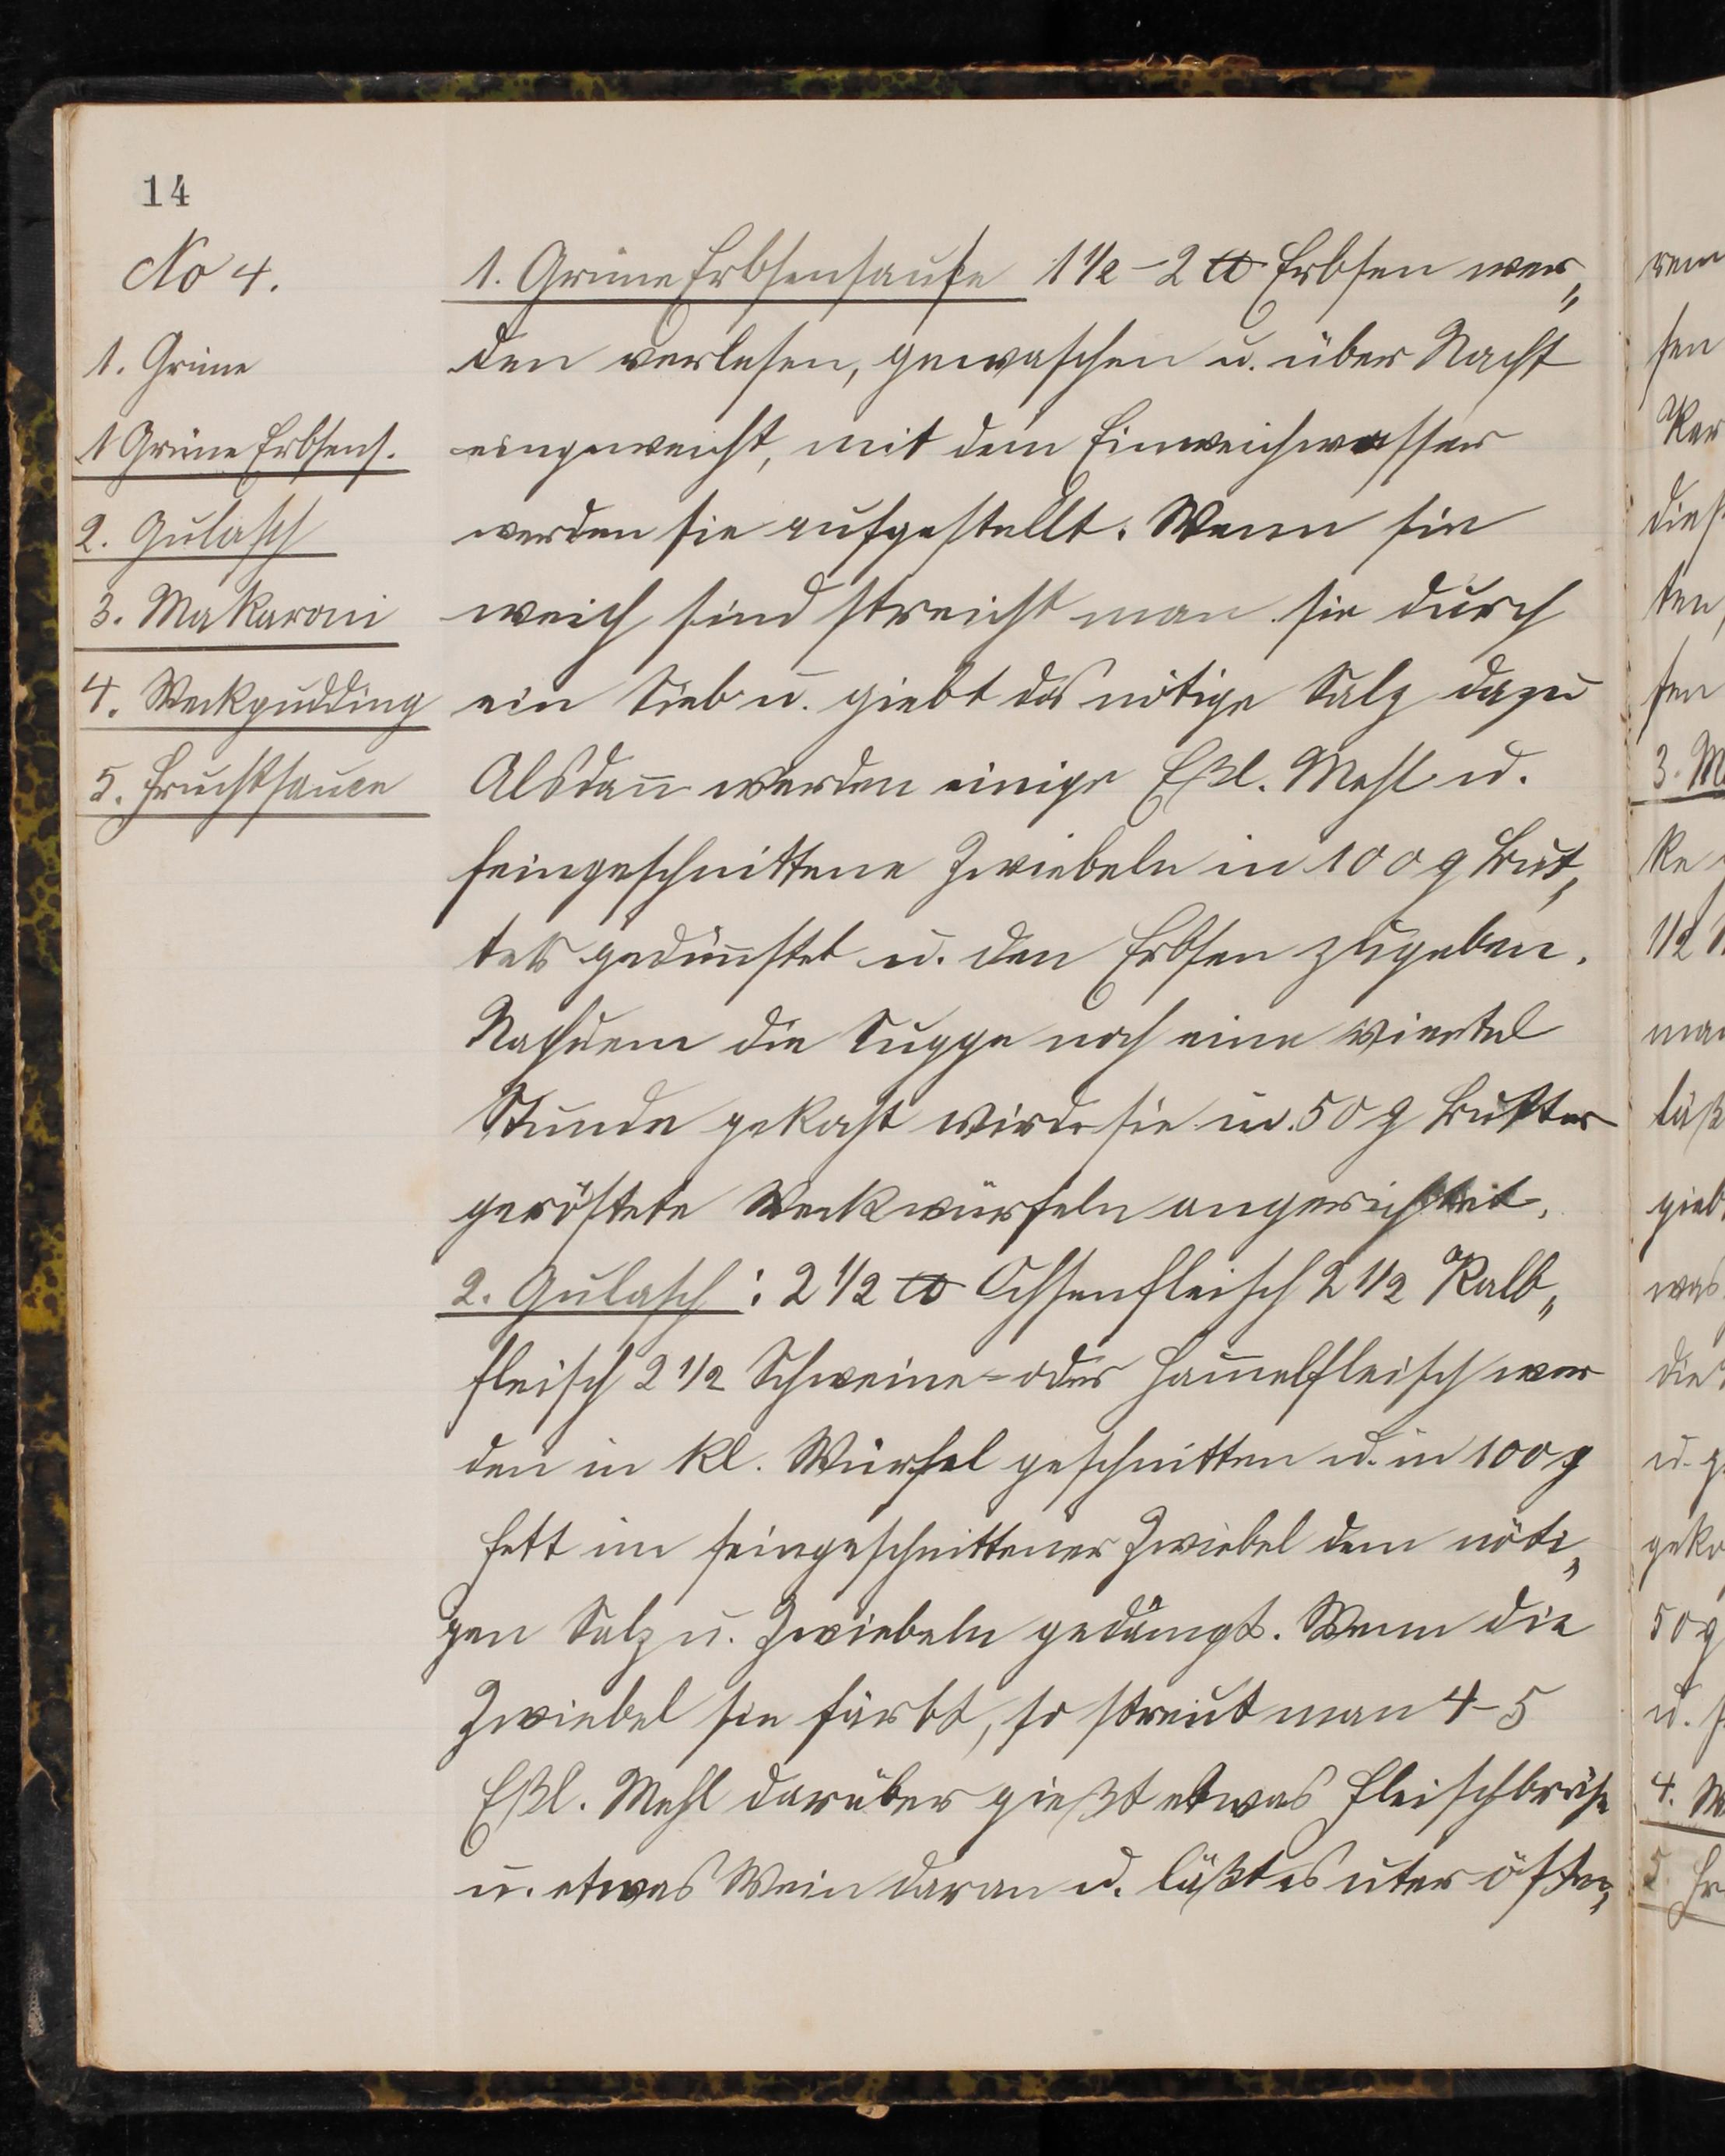 14
No 4.
1. Grüne
1 Grüne Erbsens.
2. Gulasch
3. Makaroni
4. Weckpudding
5. Fruchtsauce
1. Grüne Erbsensuppe 1 1/2 - 2 ℔ Erbsen wer„
den verlesen, gewaschen u. über Nacht
eingeweicht, mit dem Einweichwasser
werden sie aufgestellt. Wenn sie
weich sind streicht man sie durch
ein Sieb u. giebt das nötige Salz dazu
Alsdan̄ werden einige Eßl. Mehl u.
feingeschnittene Zwiebeln in 100 g But„
ter gedünstet u. den Erbsen zugeben.
Nachdem die Suppe noch eine viertel
Stunde gekocht wird sie in 50 g Butter
geröstete Weckwürfeln angerichtet.
2. Gulasch: 2 1/2 ℔ Ochsenfleisch 2 1/2 Kalb„
fleisch 2 1/2 Schweine= oder Ham̄elfleisch wer
den in kl. Würfel geschnitten u. in 100 g
Fett im feingeschnittener Zwiebel dem nöti„
gen Salz u. Zwiebeln gedämpft. Wenn die
Zwiebel sie färbt, so streut man 4-5
Eßl. Mehl darüber gießt etwas Fleischbrühe
u. etwas Wein daran u. läßt es unter öfte„
rem
sen
Kar
dies
ten,
sen
3. M
ke
1/2
man
läß
gieb
was
die
u. g
geko
50 g
u. s
4. W
5. Fr